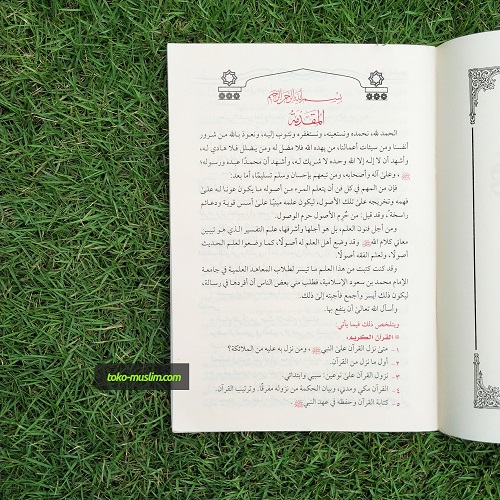 بسم الله الرحمن الرحيم
المقدمة
الحمد لله، نحمده ونستعينه، ونستغفره ونتوب إليه، ونعوذ بالله من شرور
أنفسنا ومن سيئات أعمالنا، من يهده الله فلا مضل له ومن يضلل فلا هادي له،
وأشهد أن لا إله إلا الله وحده لا شريك له، وأشهد أن محمدًا عبده ورسوله
ﷺ، وعلى آله وأصحابه، ومن تبعهم بإحسان وسلم تسليمًا، أما بعد:
فإن من المهم في كل فن أن يتعلم المرء من أصوله ما يكون عونا له على
فهمه وتخريجه على تلك الأصول، ليكون علمه مبنيًّا على أسس قوية ودعائم
راسخة، وقد قيل: من حُرِم الأصول حرم الوصول.
ومن أجل فنون العلم، بل هو أجلها وأشرفها، علم التفسير الذي هو تبيين
معاني كلام الله ﷻ وقد وضع أهل العلم له أصولًا، كما وضعوا لعلم الحديث
أصولًا، ولعلم الفقه أصولًا.
وقد كنت كتبت من هذا العلم ما تيسر لطلاب المعاهد العلمية في جامعة
الإمام محمد بن سعود الإسلامية، فطلب مني بعض الناس أن أفردها في رسالة،
ليكون ذلك أيسر وأجمع فأجبته إلى ذلك.
وأسأل الله تعالى أن ينفع بها.
ويتلخص ذلك فيما يأتي:
* القرآن الكريم:
١ - متى نزل القرآن على النبي ﷺ، ومن نزل به عليه من الملائكة؟
٢ - أول ما نزل من القرآن.
٣ - نزول القرآن على نوعين: سببي وابتدائي.
٤ - القرآن مكي ومدني، وبيان الحكمة من نزوله مفرقًا. وترتيب القرآن.
٥ - كتابة القرآن وحفظه في عهد النبي ﷺ.
toko-muslim.com